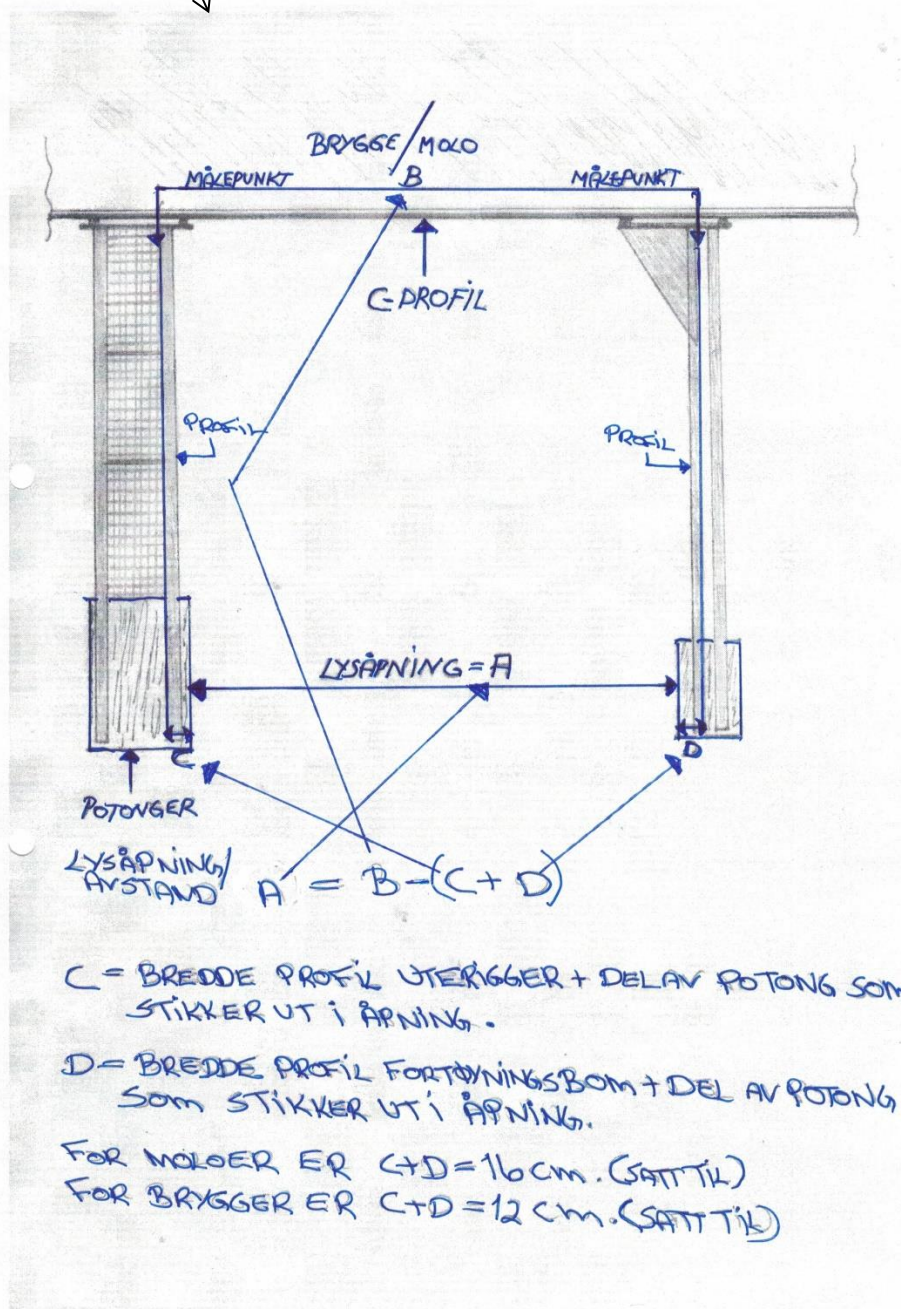 BRYGGE/MOLO
MÅLEPUNKT
B
MÅLEPUNKT
C-PROFIL
PROFIL
PROFIL
LYSÅPNING = A
C
D
POTONGER
LYSÅPNING/
AVSTAND A = B-(C+D)
C = BREDDE PROFIL UTERIGGER + DEL AV POTONG SOM
STIKKER UT I ÅPNING.
D = BREDDE PROFIL FORTØYNINGSBOM + DEL AV POTONG
SOM STIKKER UT I ÅPNING.
FOR MOLOER ER C+D = 16 cm. (SATT TIL)
FOR BRYGGER ER C+D = 12 cm. (SATT TIL)